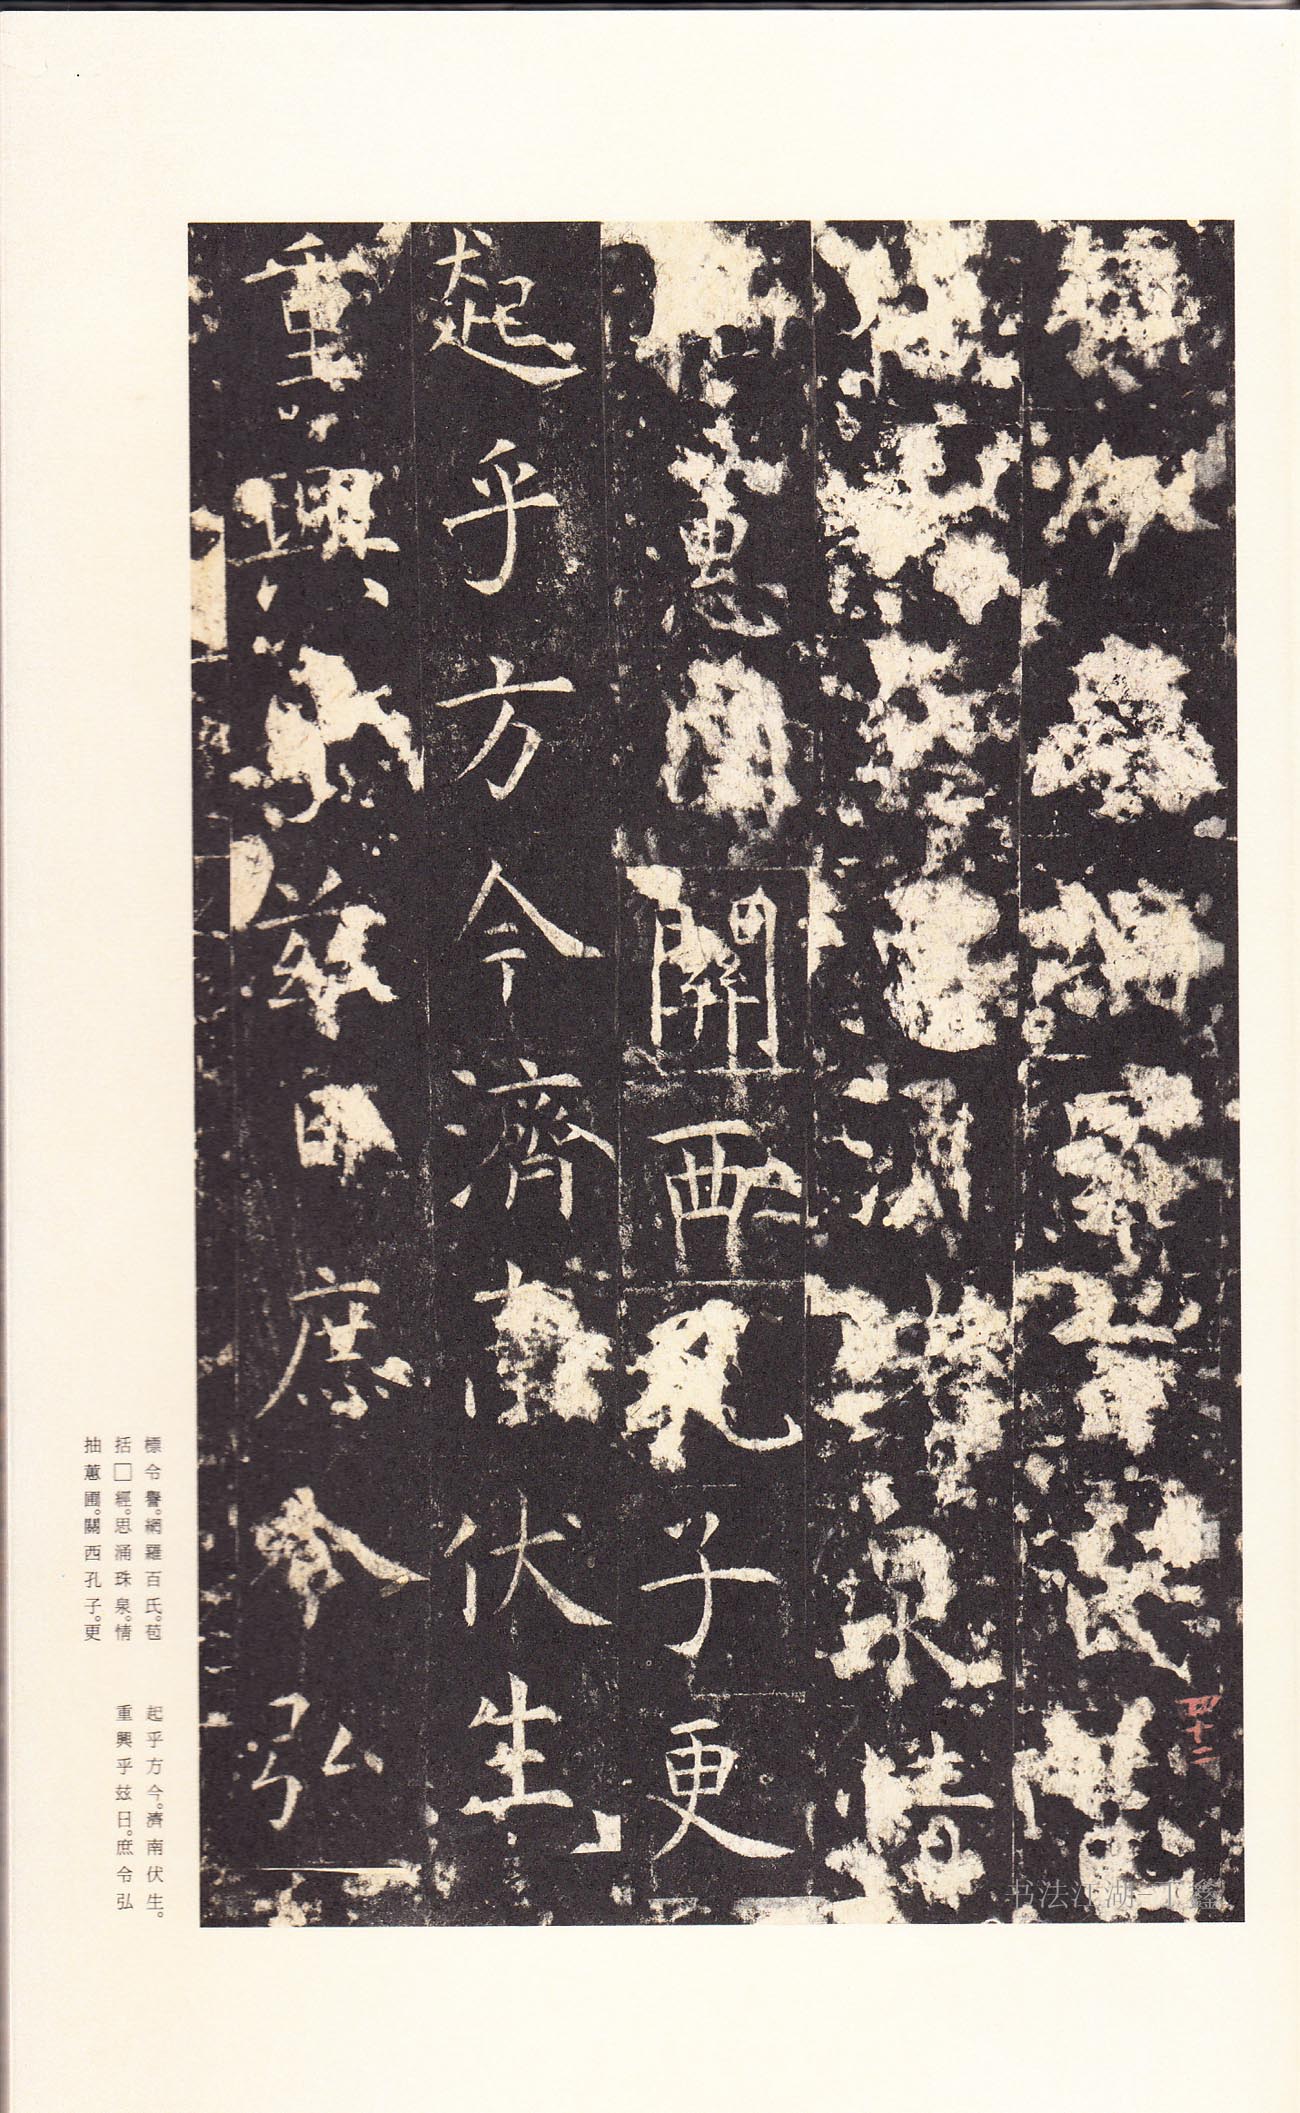 令 網羅百氏苞
涌珠泉情
蕙圃關西孔子更
起乎方今濟南伏生
重興乎兹日庶令弘
四十二
標令譽。網羅百氏。苞
括□經。思涌珠泉。情
抽蕙圃。關西孔子。更
起乎方今。濟南伏生。
重興乎兹日。庶令弘
书法江湖